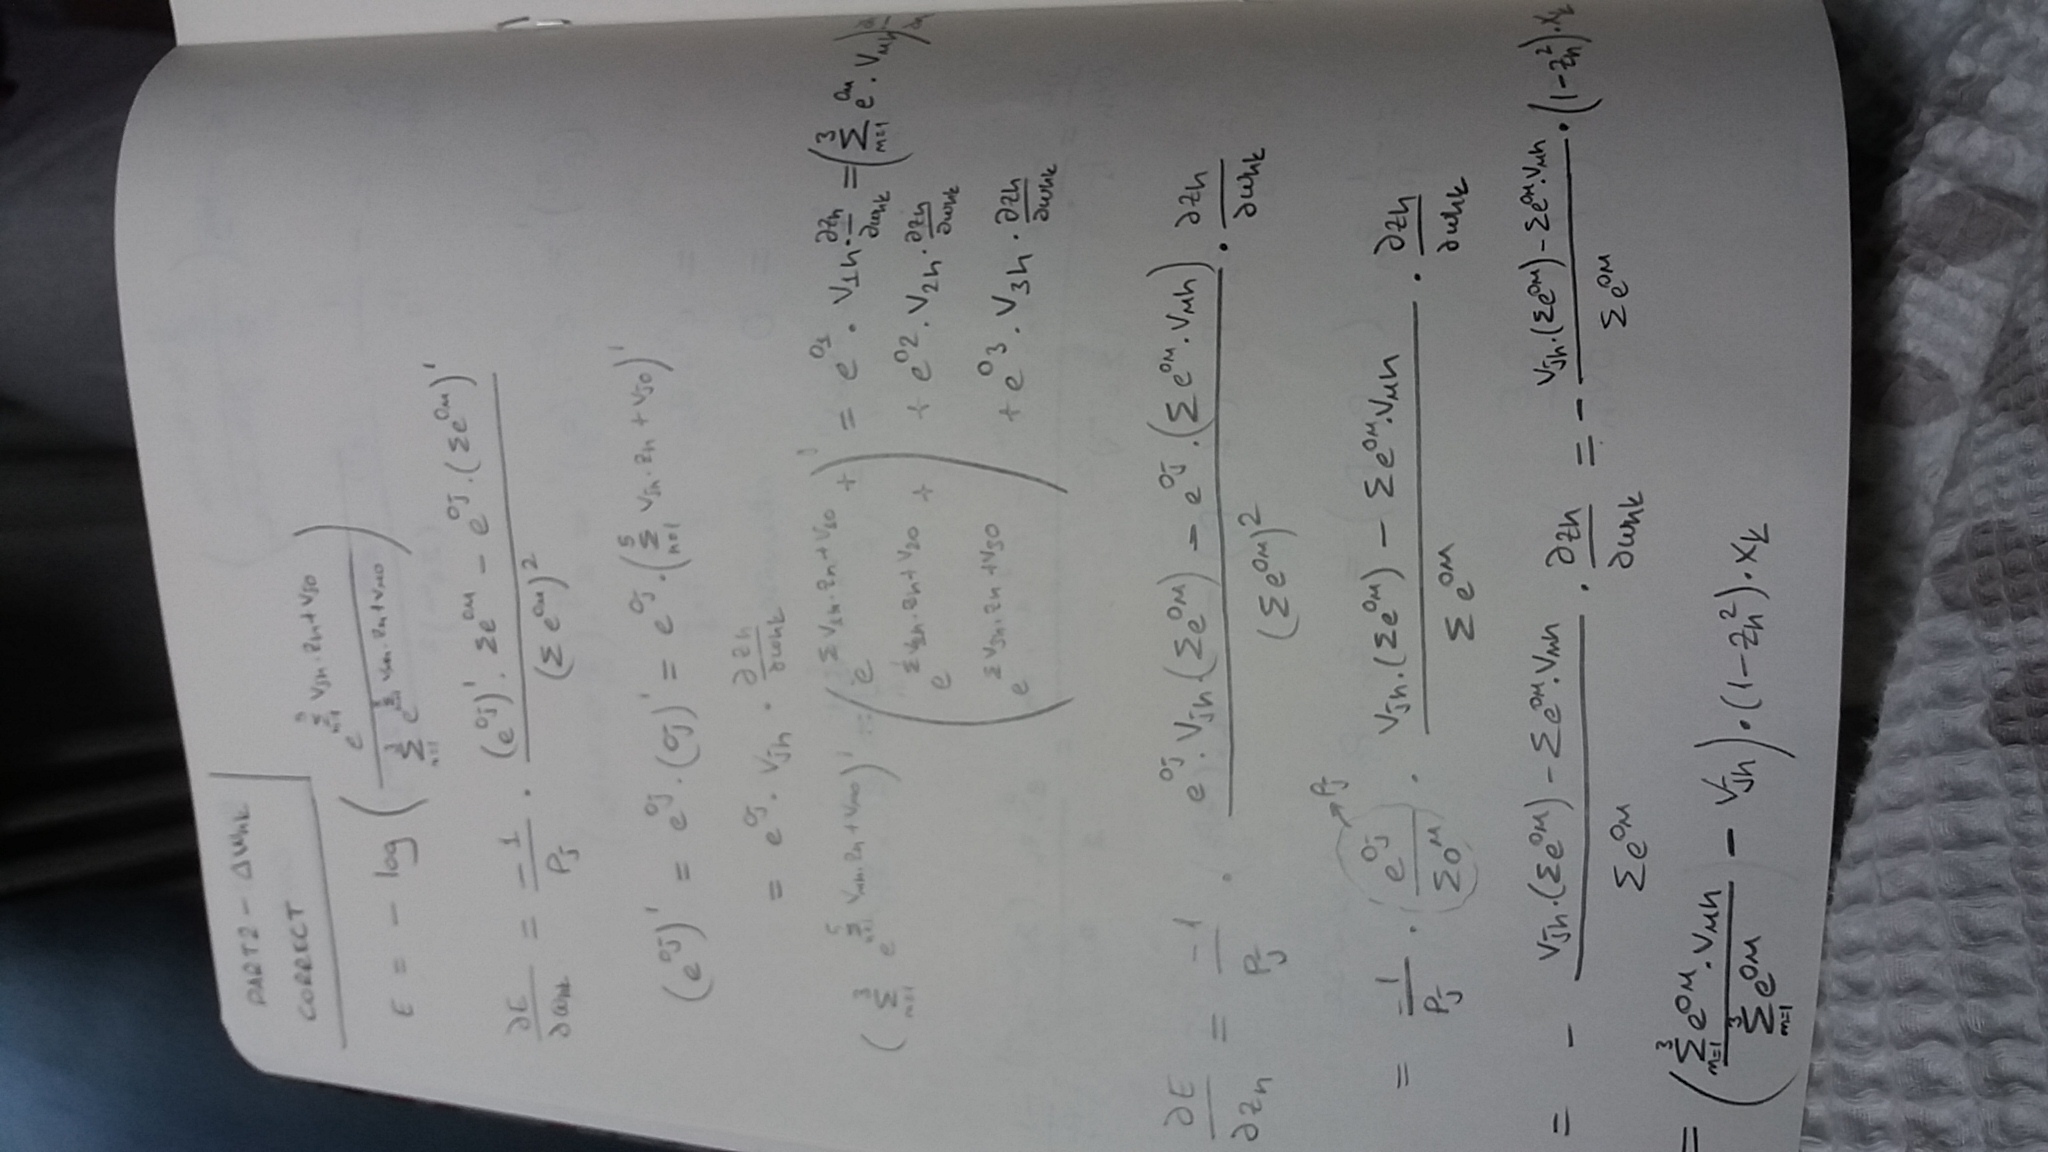 PART2 - ΔWhk
CORRECT
E = - log ( e^(Σ_{h=1}^{5} Vjh · Zh + Vj0) / Σ_{m=1}^{3} e^(Σ_{h=1}^{5} Vmh · Zh + Vm0) )
∂E/∂whk = -1/Pj · ((e^oj)' · Σe^om - e^oj · (Σe^om)') / (Σe^om)^2
(e^oj)' = e^oj · (oj)' = e^oj · (Σ_{h=1}^{5} Vjh · Zh + Vj0)'
= e^oj · Vjh · ∂zh/∂whk
(Σ_{m=1}^{3} e^(Σ_{h=1}^{5} Vmh · Zh + Vm0))' = ( e^(ΣV1h · Zh + V10) + e^(ΣV2h · Zh + V20) + e^(ΣV3h · Zh + V30) )' = e^o1 · V1h · ∂zh/∂whk = (Σ_{m=1}^{3} e^om · Vmh)
+ e^o2 · V2h · ∂zh/∂whk
+ e^o3 · V3h · ∂zh/∂whk
∂E/∂zh = -1/Pj · (e^oj · Vjh · (Σe^om) - e^oj · (Σe^om · Vmh)) / (Σe^om)^2 · ∂zh/∂whk
= -1/Pj · e^oj/Σo^m → Pj · (Vjh · (Σe^om) - Σe^om · Vmh) / Σe^om · ∂zh/∂whk
= - (Vjh · (Σe^om) - Σe^om · Vmh) / Σe^om · ∂zh/∂whk = - (Vjh · (Σe^om) - Σe^om · Vmh) / Σe^om · (1 - zh^2) · xk
= ( Σ_{m=1}^{3} e^om · Vmh / Σ_{m=1}^{3} e^om - Vjh ) · (1 - zh^2) · xk